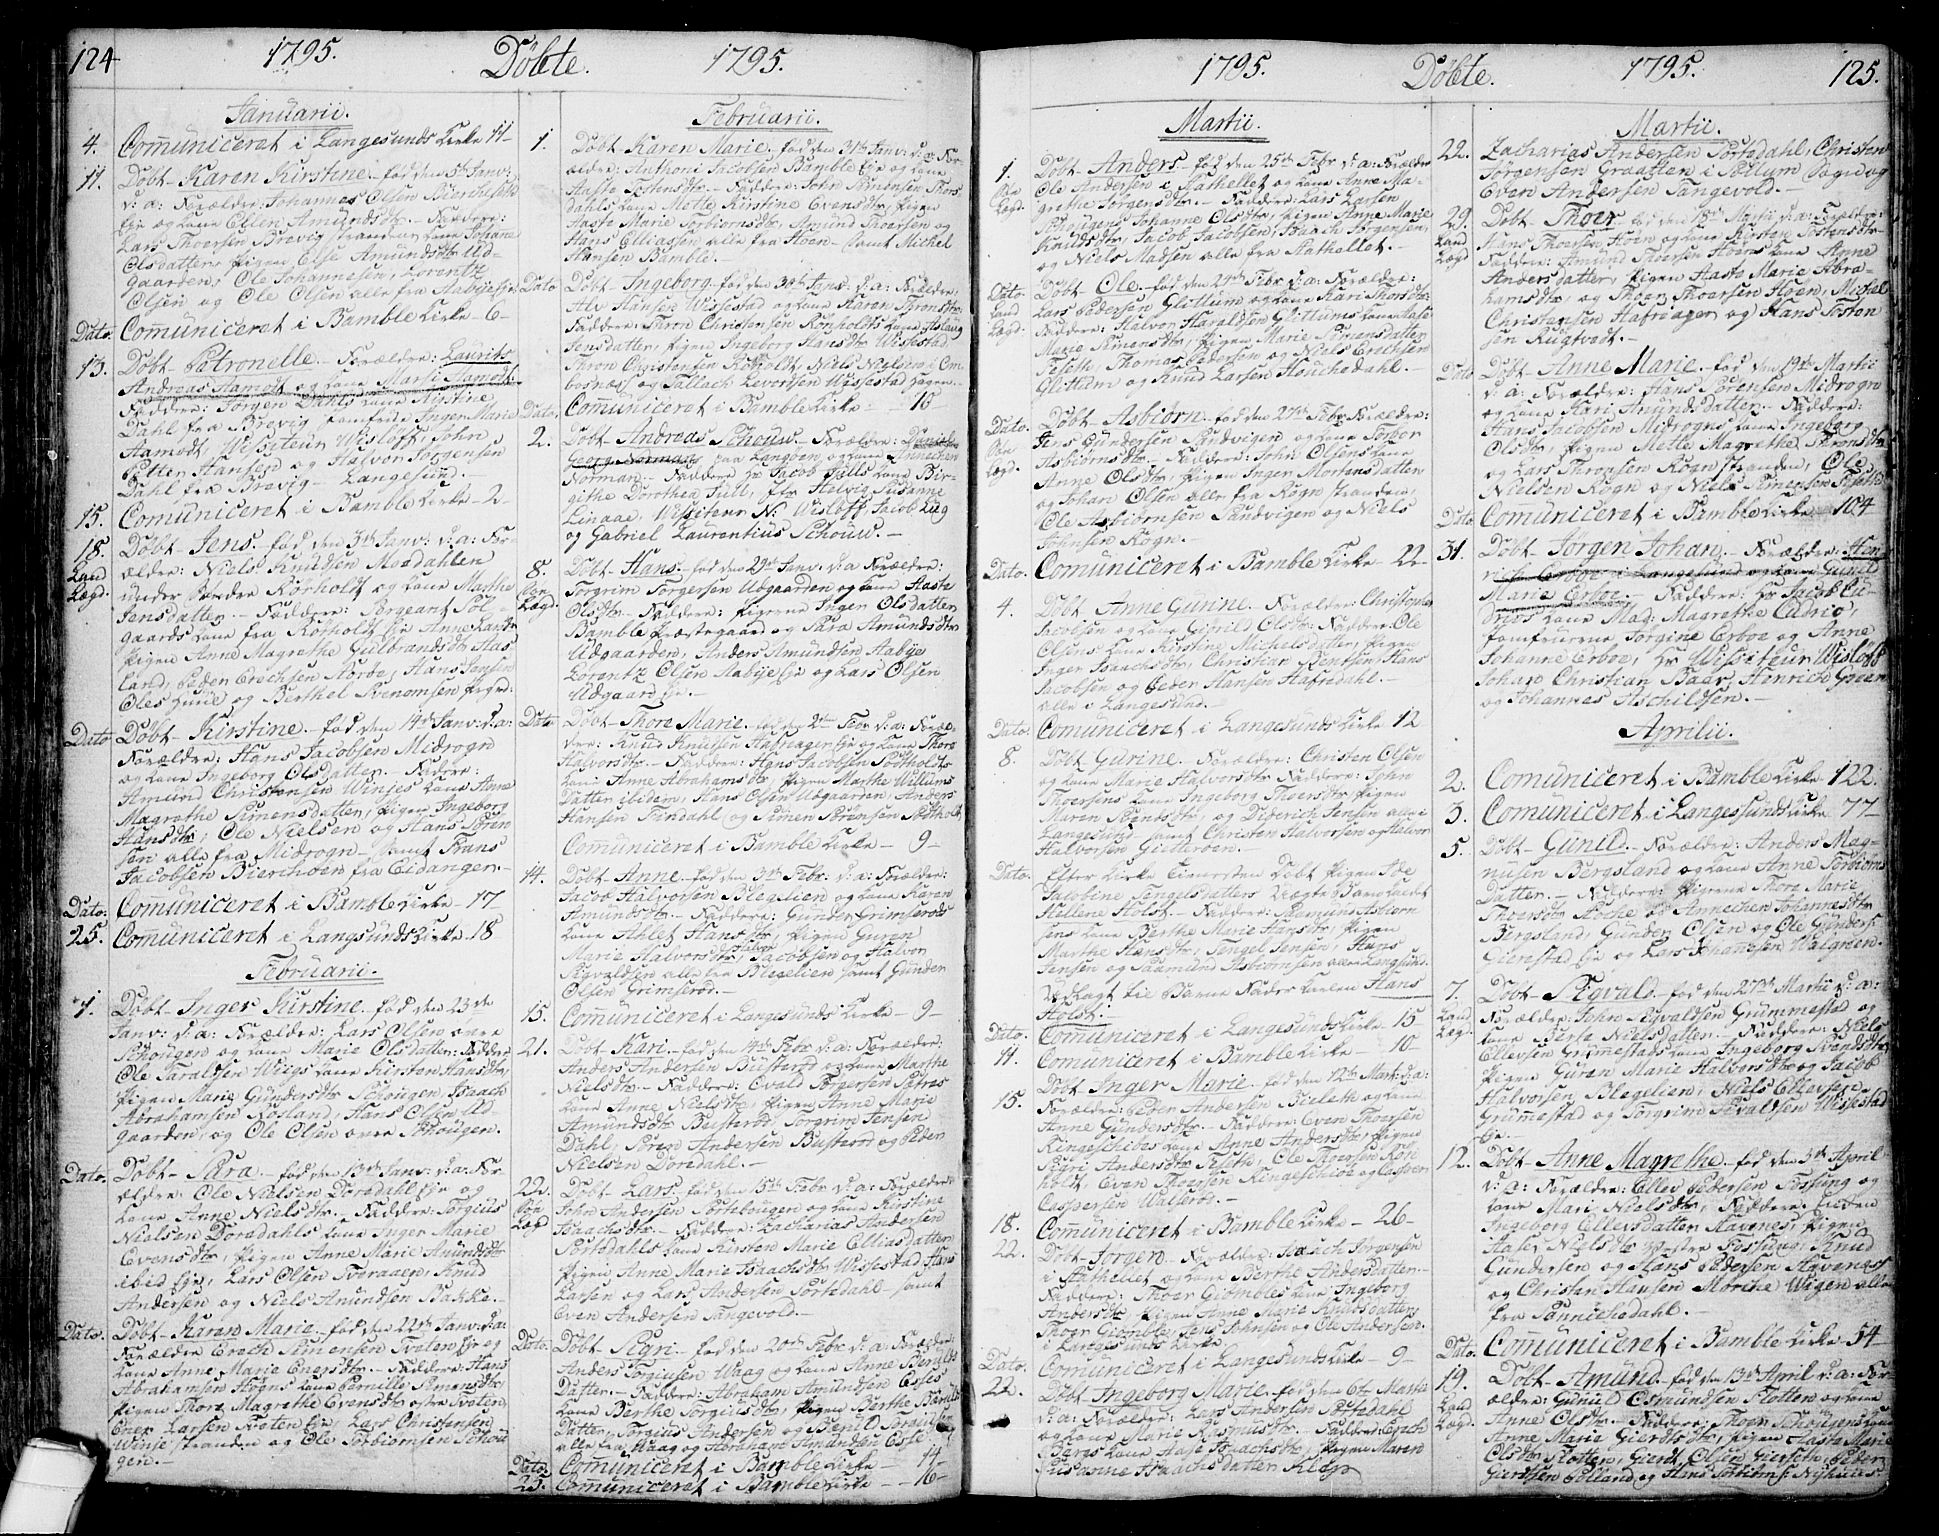 124
1795.
Döbte.
1795.
Januarii.
4. Communiceret i Langesunds Kirke 11
11. Döbt Karen Kirstine, fød den 5th Janv:
d: a: Forælder: Johannes Olsen
Eje og kone Ellen Amundsdtr. Faddere:
Lars Thoersen Brevig stranden kone Johane
Olsdatter, pigen Else Amundsdtr Ud-
gaarden, Ole Johannesen, Lorentz
Olsen og Ole Olsen alle fra Aabyeje
Dato Communiceret i Bamble Kirke 6
13. Döbt Patronelle. Forælder: Laurits
Andreas Aamodt og kone Aamodt.
Faddere: Jørgen Dahls kone Kirstine
Dahl fra Brevig jomfrue Inger Marie
Aamodt, Visiteur Wisloff, John
Petter Hansen og Halvor Jørgensen
Dahl fra Brevig Langesund.
15. Communiceret i Bamble Kirke 2
18. Döbt Jens. fød den 3th Janv: d: a: For-
Land Lægd. ælder: Niels Knudsen Moedahlen
under Rörholt og kone Marthe
Jensdatter. Faddere: Sergeant Sol-
gaards kone fra Rörholt Eje Anne
pigen Anne Magrethe Gulbrandsdtr Aas
land, Peder Erichsen Nordbø, Hans Jensen
Oles Lund og Berthel Svenomsen
Dato Döbt Kirstine. fød den 14th Janv: d: a:
Forælder: Hans Jacobsen Midrogn
og kone Ingeborg Olsdatter. Faddere:
Amund Christensen Winjes kone Anne
Magrethe Simensdatter, pigen Ingeborg
Hansdtr, Ole Nielsen og Hans Sören
sen alle fra Midrogn samt Frans
Jacobsen Bierchoen fra Eidanger.
Dato: Communiceret i Bamble Kirke 17
25. Communiceret i Langsunds Kirke 18
Februarii.
1. Döbt Inger Kirstine. fød den 23de
Janv: d: a: Forælder: Lars Olsen övre
Schougen og kone Marie Olsdatter: Faddere
Ole Taraldsen Wiigs kone Kirsten Hansdtr,
pigen Marie Gundersdtr Schougen, Isaach
Abrahamsen Rosland, Hans Olsen Ud-
gaarden, og Ole Olsen övre Schougen.
Dato. Döbt Sara. fød den 13de Janv: d: a: For-
ælder: Ole Nielsen Doredahl Eje og
kone Anne Nielsdtr. Faddere: Torgius
Nielsen Doredahls kone Inger Marie
Evensdtr, pigen Anne Marie Amundsdtr
ibid Eje, Lars Olsen Tveraaen, Knud
Andersen og Niels Amundsen Bakke.
Dato. Döbt Karen Marie. fød den 22th Janv: d: a:
Forælder Erich Simensen Tvaten Eje og
kone Anne Marie Enersdtr. Faddere: Hans
Abrahamsen Rogns kone Pernille Simensdtr,
pigen Thora Magrethe Evensdtr östre Tvaten,
Ener Larsen Tvaten Eje, Lars Christensen
Winje stranden og Ole Torbiornsen Schou
gen.
Februarii.
1. Döbt Karen Marie, fød den 31th Janv: d: a: For-
ælder: Anthoni Jacobsen Bamble Eje og kone
Aaste Tostensdtr. Faddere: John Simonsen Thors
dahls kone Mette Kirstine Evensdtr, pigen
Aaste Marie Torbiornsdtr, Amund Taraldsen og
Hans Elliassen alle fra Hoen samt Michel
Hansen Bamble.
Dato Döbt Ingeborg. fød den 30th Janv: d: a: Forælder:
Ole Hansen Wissestad og kone Karen Thronsdtr.
Faddere: Thron Christensen Rönholts kone Aslaug
Jensdatter, pigen Ingeborg Hansdtr Wissestad
Thron Christensen Rörholt, Niels Nielsen i Om-
bosnæs og Tallach Levorsen Wissestad hagen.
Dato. Communiceret i Bamble Kirke 10
2. Döbt Andreas Schouw. Forælder: Daniel
Georg Norman paa Langöen og kone Annichen
Norman. Faddere Hr Jacob Julls kone Bir-
githe Dorothea Jull, jfr Helvig Susanne
Linaae, Visiteur N: Wisloff, Jacob Lug
og Gabriel Laurentius Schouw.
8. Döbt Hans. fød den 29th Janv: d: a: Forælder:
Søn Lægd. Torgrim Torgersen Udgaarden og kone Aaste
Olsdtr. Faddere: pigerne Inger Olsdatter
Bamble Præstegaard og Sara Amundsdtr
Udgaarden, Anders Amundsen Aabye
Lorentz Olsen Aabye Eje og Lars Olsen
Udgaard Eje.
Dato Döbt Thore Marie. fød den 2den Febr d: a: Foræl-
der: Knud Knudsen Hafreager Eje og kone Thore
Halvorsdtr. Faddere: Hans Jacobsen Rörholts
kone Anne Abrahamsdtr, pigen Marthe Willums
Datter ibidem, Hans Olsen Udgaarden, Anders
Hansen Trindahl og Simen Sørensen
Communiceret i Bamble Kirke 9
14. Döbt Anne. fød den 3th Febr: d: a: Forælder:
Jacob Halvorsen Blegelien og kone Karen
Amundsdtr. Faddere: Gunder Grimserods
kone Ahlet Hansdtr, pigen Guren
Marie Halvorsdtr, Halvor Jacobsen og Halvor
Sigvaldsen alle fra Blegelien samt Gunder
Olsen Grimserod.
15. Communiceret i Langesunds Kirke 9
21. Döbt Kari. fød den 14th Febr d: a: Forælder:
Anders Andersen Busterod og kone Marthe
Nielsdtr. Faddere: Evald Torgersen
kone Anne Nielsdtr, pigen Anne Marie
Amundsdtr Busterod, Torgrim Jensen
Dahl, Sören Andersen Busterod og Peder
Nielsen Doredahl.
22. Döbt Lars. fød den 15th Febr d: a: Forælder:
Søn Lægd John Andersen Sortebougen og kone Kirstine
Isaachsdtr. Faddere: Zacharias Andersen
Tortsdahls kone Kirsten Marie Elliasdatter
pigen Anne Marie Isaachsdtr Wissestad, Hans
Larsen og Lars Andersen Tortsdahl samt
Even Andersen Tangevold.
Dato. Döbt Sigri. fød den 20de Febr d: a: Forælder:
Anders Torgiusen Waag og kone Anne Bentsd
Datter. Faddere: Abraham Amundsen Eses
kone Berthe Torgiusdtr, pigen Berthe
Datter, Torgius Andersen og Bent Torgiusen
alle fra Waag og Abraham Amundsen Ese
Dato. Communiceret i Bamble Kirke 14
25. Communiceret i Bamble Kirke 16
1795.
Döbte.
1795.
125.
Martii.
1. Döbt Anders. fød den 25th Febr d: a: Forælder
Søn Lægd. Ole Andersen i Aathellet og kone Anne Ma-
grethe Jørgensdtr. Faddere: Lars Larsen
Schougens Johanne Olsdtr, pigen Anne Marie
Knudsdtr, Jacob Jacobsen, Isaach Jørgensen,
og Niels Madsen alle fra Aathellet.
Dato Land Lægd. Döbt Ole. fød den 24th Febr d: a: Forælder:
Lars Pedersen Glittum og kone Kari Thorsdtr.
Faddere: Halvor Haraldsen Glittums kone Aase
Marie Simensdtr, pigen Marie Simensdatter
Feseth, Thomas Pedersen og Niels Erichsen
Glittum og Knud Larsen Henchedahl.
Dato. Döbt Asbiørn. fød den 27th Febr Forælder:
Søn Lægd. Jens Gundersen Sandvigen og kone Torbor
Asbiørnsdtr. Faddere: John Olsens kone
Anne Olsdtr, pigen Inger Mortensdatter
og Johan Olsen alle fra Rogn stranden,
Ole Asbiørnsen Sandvigen og Niels
Johnsen Rogn.
Dato. Communiceret i Bamble Kirke 22
4. Döbt Anne Gurine. Forælder: Christopher
Jacobsen og kone Gunild Olsdtr. Faddere: Ole
Olsens kone Kirstine Michelsdatter, pigen
Inger Isaachsdtr, Christian Bentsen, Hans
Jacobsen og Peder Hansen Hafredahl.
alle i Langesund.
Dato. Communiceret i Langesunds Kirke 12
8. Döbt Gurine. Forælder: Christen Olsen
og kone Marie Halvorsdtr. Faddere: John
Thoersens kone Ingeborg Thoersdtr, pigen
Maren Svendsdtr, og Diderich Jensen alle i
Langesund samt Christen Halvorsen og Halvor
Halvorsen Gietteröen.
Dato. Efter Kirke Tienesten Döbt pigen Ide
Jacobine Tengelsdatters Uægte Barn kaldet
Hellene Holst. Faddere: Rasmund Asbiorn
sens kone Berthe Marie Hansdtr, pigen
Marthe Hansdtr, Tengel Jensen, Hans
Jensen og Raamund Asbiørnsen alle Langesund.
Udlagt til Barne Fader Karlen Hans
Holst.
Dato. Communiceret i Langesunds Kirke 15
11. Communiceret i Bamble Kirke 10
15. Döbt Inger Marie. fød den 12th Mart: d: a:
Forælder: Peder Andersen Bieleth og kone
Anne Gundersdtr. Faddere: Even Thorsen
Ringeschibes kone Anne Andersdtr, pigen
Sigri Andersdtr Feseth, Ole Thorsen Röri
holdt, Even Thorsen Ringeschiöe og Casper
Caspersen Walleröe.
18. Communiceret i Bamble Kirke 26
22. Döbt Jørgen. Forælder: Isaach Jørgensen
i Aathellet og kone Berthe Andersdatter.
Faddere: Thoer Giömles kone Ingeborg
Andersdtr, pigen Anne Marie Knudsdatter,
Thoer Giömle, Jens Johnsen og Ole Andersen.
i Langesunds Kirke
Dato. Communiceret i Langesunds Kirke 9
22. Döbt Ingeborg Marie. fød den 6th Martii
d: a: Forælder: Lars Andersen Tortsdahl
og kone Marie Rasmusdtr. Faddere: Erich
Bergs kone Aase Isaachsdtr, pigen Maren
Susanne Isaachsdatter Klep
Martii.
22. Zacharias Andersen Tortsdahl, Christen
Jørgensen Graatten i Sællum Sogn og
Even Andersen Tangevold.
29. Döbt Thoer. fød den 18th Martii d: a: Forælder:
Land Lægd Hans Thoersen Hoen og kone Kirsten Tostensdtr
Faddere: Amund Thoersen Hoens kone Anne
Andersdatter, pigen Aaste Marie Abra-
hamsdtr, og Thoer Thoersen Hoen, Michel
Christensen Hafreager og Hans Tosten
sen Rugtvedt.
Dato Döbt Anne Marie. fød den 19th Martii
d: a: Forælder: Hans Sörensen Midrogn
og kone Kari Amundsdatter. Faddere:
Hans Jacobsen Midrogns kone Ingeborg
Olsdtr, pigen Mette Magrethe Thronsdtr
og Lars Thronsen Rogn stranden, Ole
Nielsen Rogn og Niels Simensen
Dato. Communiceret i Bamble Kirke 104
31. Döbt Jørgen Johan. Forælder: Hen
rich Erboe i Langesund og kone Gunild
Marie Erboe. Faddere: Hr Jacob Cu-
drios kone Mad: Magrethe Cudrio,
jomfruerne Jorgine Erboe og Anne
Johanne Erboe, Hr Wissiteur Wisloff
Johan Christian Baar, Henrich Green
og Johannes Aschildsen.
Aprilii.
2. Communiceret i Bamble Kirke 122.
3. Communiceret i Langesunds Kirke 77
5. Döbt Gunild. Forælder: Anders Mag-
nusen Bergsland og kone Anne Torbiorns
Datter. Faddere: pigerne Thore Marie
Thoersdtr Aoche og Annechen Johannesdtr
Bergsland, Gunder Olsen og Ole Gunders:
Gierestad Eje og Lars Johannesen Walgreen.
7. Döbt Sigvald. fød den 27th Martii d: a:
Land Læg. Forælder: John Sigvaldsen Grummestad og
kone Berte Nielsdatter. Faddere: Niels
Ellevsen Grummestads kone Ingeborg Svendsdtr
pigen Guren Marie Halvorsdtr og Jacob
Halvorsen Blegelien, Niels Ellevsen
Grummestad og Torgrim Sivaldsen Wissestad
Eje.
12. Döbt Anne Magrethe. fød den 5th April
d: a: Forælder: Ellev Pedersen Fossing og
kone Mari Nielsdtr. Faddere: Enken
Ingeborg Ellevsdatter Havenes, pigen
Aase Nielsdtr vestre Fossing, Knud
Gundersen og Hans Pedersen Havenes
og Christen Hansen Mörche Wigen alle
fra Sannickedahl.
Dato. Communiceret i Bamble Kirke 54
19. Döbt Amund. fød den 13th April d: a: For-
Land Lægd. ælder: Gunild Osmundsen Flotten og kone
Anne Olsdtr. Faddere: Thoer Schougens kone
Anne Marie Giertsdtr, pigen Aaste Marie
Olsdtr Flotten, Giert Olsen Giersen, Peder
Giertsen Selland, og Hans Torbiørns: Nyhuus